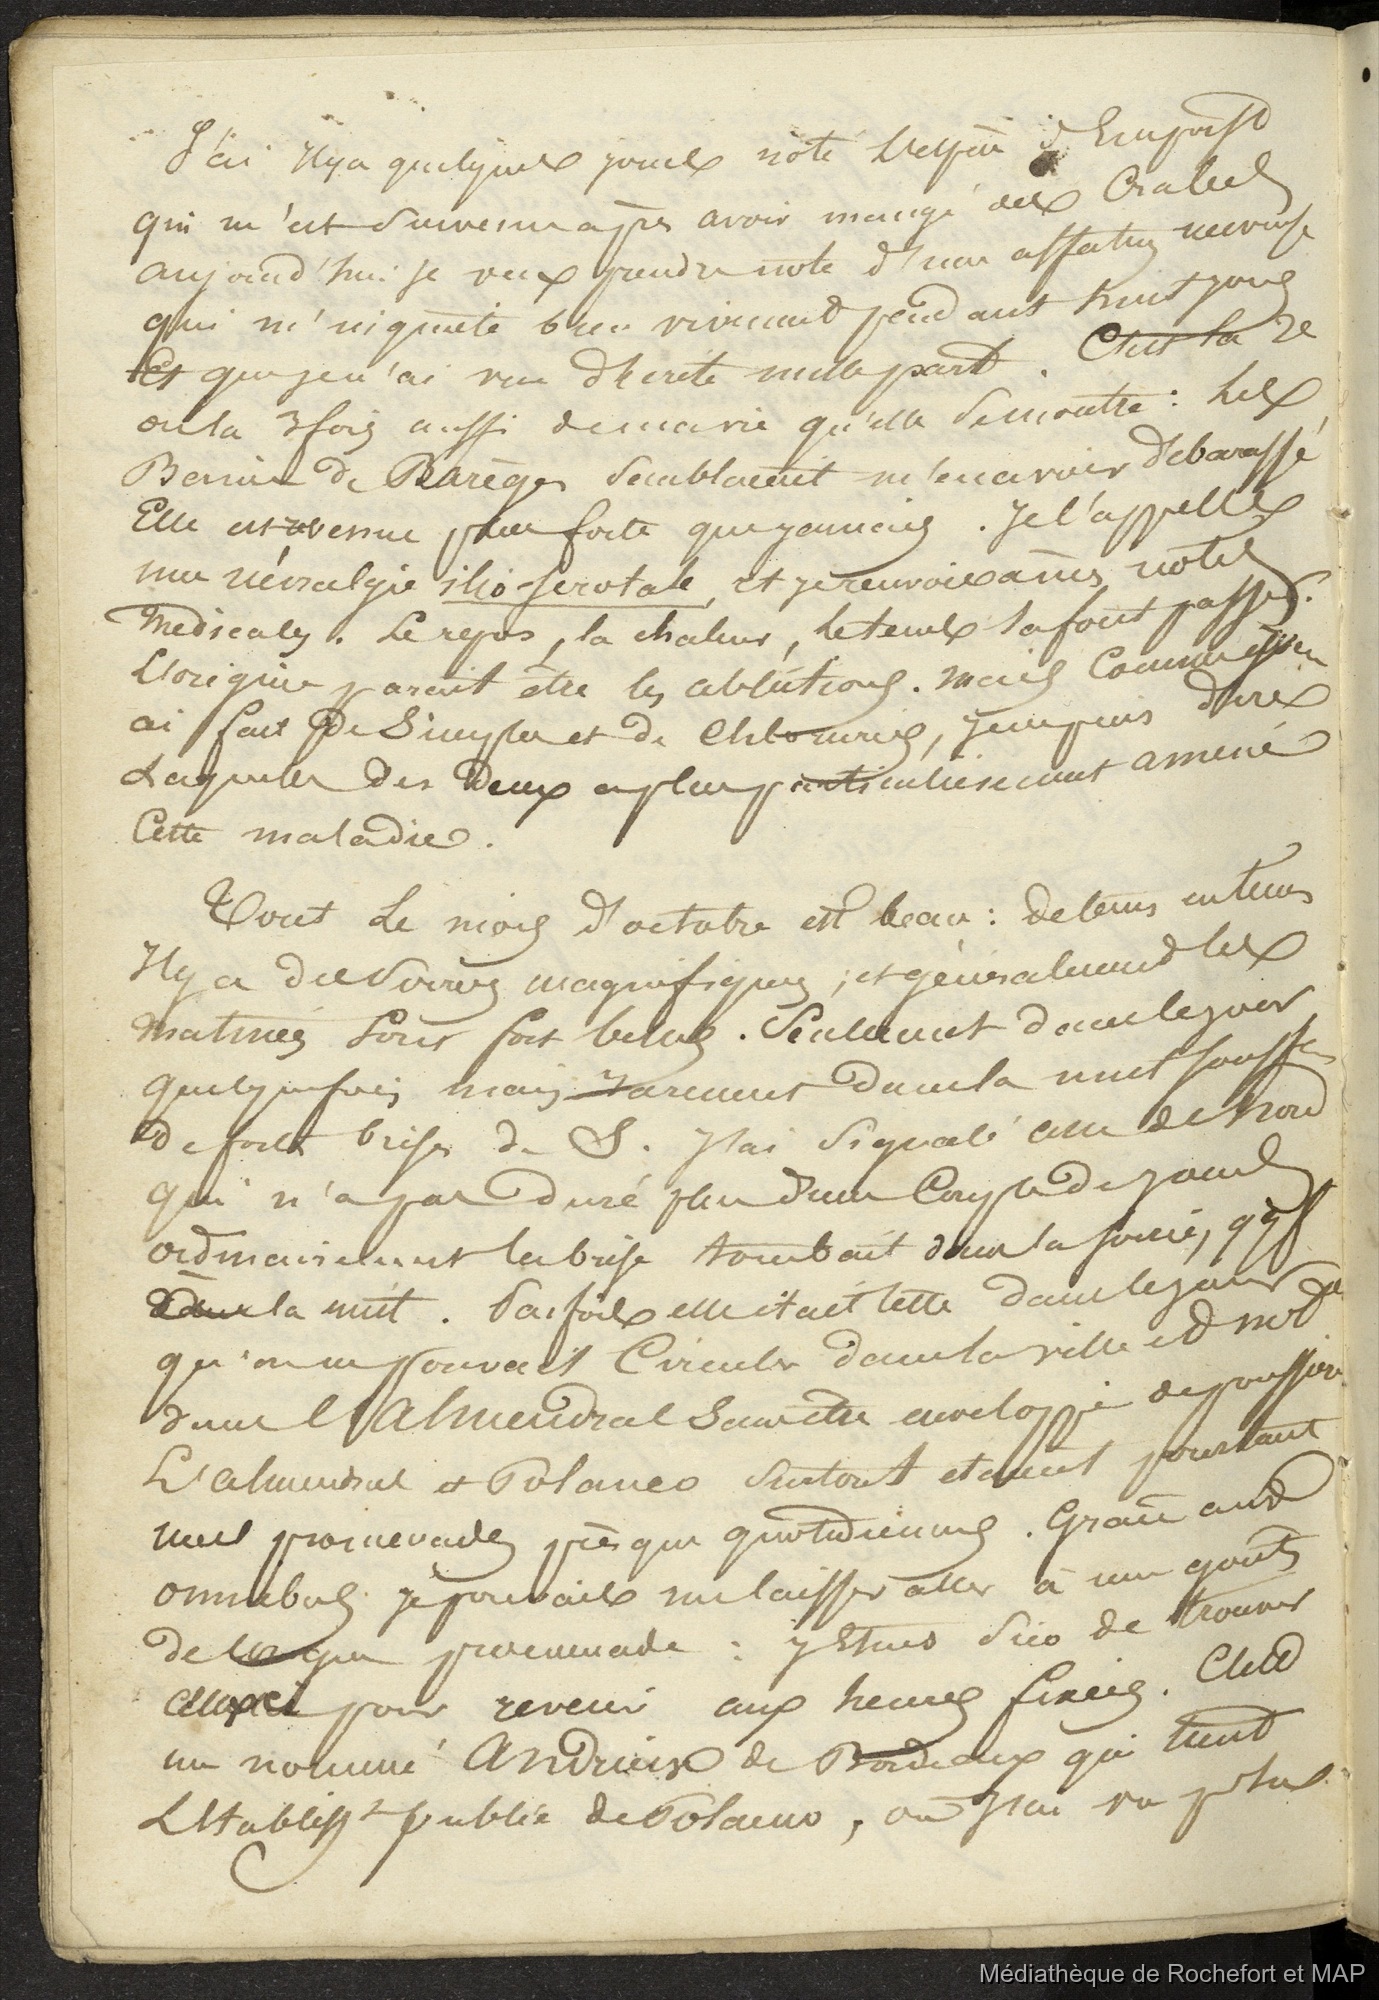 J'ai Il y a quelques jours noté l'espèce d'Empoist
qui m'est survenu après avoir mangé des Crabes
aujourd'hui je veux prendre note d'une affection nerveuse
qui m'inquiete bien vivement pendant huit jours
Et que je n'ai vue décrite nulle part. C'est la 2e
ou la 3 fois aussi de ma vie qu'elle se montre : les
Bains de Barèges semblaient m'en avoir débarassé
Elle est revenue plus forte que jamais. Je l'appelle
ma névralgie ilio-scrotale, et je renvoie à mes notes
Medicales. Le repos, la chaleur, le tems la font passer.
L'origine parait être les ablutions. Mais comme j'en
ai fait de Simples et de Chlorurées, je ne puis dire
Laquelle des deux a plus particulièrement amené
Cette maladie.
Tout le mois d'octobre est beau : de tems en tems
Il y a des soirées magnifiques ; et généralement les
matinées sont fort belles. Seulement dans le jour
quelquefois mais rarement dans la nuit souffle
de fortes brises de S. J'ai signalé une de Nord
qui n'a pas duré plus d'un couple de jours
ordinairement la brise tombait dans la soirée, qqf
dans la nuit. Parfois elle était telle dans le jour
qu'on ne pouvait Circuler dans la ville et
dans l'Almendral sans être enveloppé de poussière
L'almendral et Polanco surtout étaient pourtant
mes promenades presque quotidiennes. Grace aux
omnibus je pouvais me laisser aller à mes gouts
de longue promenade : sûr de trouver
ceux ci pour revenir aux heures fixées. C'est
un nommé Andrieux de Bordeaux qui tient
L'Etablisst public de Polanco, où j'ai vu plus